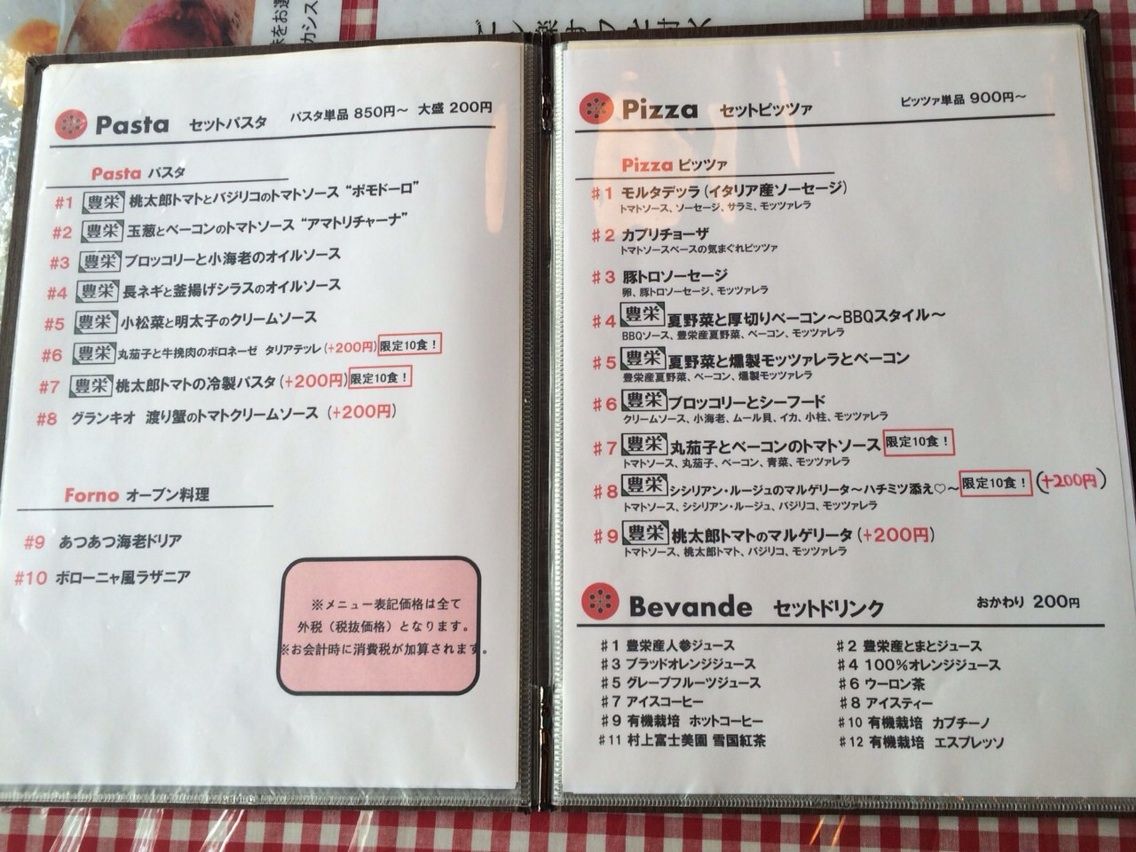 Pasta セットパスタ パスタ単品 850円~ 大盛 200円
Pasta パスタ
#1 豊栄 桃太郎トマトとバジリコのトマトソース “ポモドーロ”
#2 豊栄 玉葱とベーコンのトマトソース “アマトリチャーナ”
#3 豊栄 ブロッコリーと小海老のオイルソース
#4 豊栄 長ネギと釜揚げシラスのオイルソース
#5 豊栄 小松菜と明太子のクリームソース
#6 豊栄 丸茄子と牛挽肉のボロネーゼ タリアテッレ (+200円) 限定10食!
#7 豊栄 桃太郎トマトの冷製パスタ (+200円) 限定10食!
#8 グランキオ 渡り蟹のトマトクリームソース (+200円)
Forno オーブン料理
#9 あつあつ海老ドリア
#10 ボローニャ風ラザニア
※メニュー表記価格は全て
外税(税抜価格)となります。
※お会計時に消費税が加算されます。
Pizza セットピッツァ ピッツァ単品 900円~
Pizza ピッツァ
#1 モルタデッラ(イタリア産ソーセージ)
トマトソース、ソーセージ、サラミ、モッツァレラ
#2 カプリチョーザ
トマトソースベースの気まぐれピッツァ
#3 豚トロソーセージ
卵、豚トロソーセージ、モッツァレラ
#4 豊栄 夏野菜と厚切りベーコン~BBQスタイル~
BBQソース、豊栄産夏野菜、ベーコン、モッツァレラ
#5 豊栄 夏野菜と燻製モッツァレラとベーコン
豊栄産夏野菜、ベーコン、燻製モッツァレラ
#6 豊栄 ブロッコリーとシーフード
クリームソース、小海老、ムール貝、イカ、小柱、モッツァレラ
#7 豊栄 丸茄子とベーコンのトマトソース 限定10食!
トマトソース、丸茄子、ベーコン、青菜、モッツァレラ
#8 豊栄 シシリアン・ルージュのマルゲリータ~ハチミツ添え♡~ 限定10食! (+200円)
トマトソース、シシリアン・ルージュ、バジリコ、モッツァレラ
#9 豊栄 桃太郎トマトのマルゲリータ (+200円)
トマトソース、桃太郎トマト、バジリコ、モッツァレラ
Bevande セットドリンク おかわり 200円
#1 豊栄産人参ジュース #2 豊栄産とまとジュース
#3 ブラッドオレンジジュース #4 100%オレンジジュース
#5 グレープフルーツジュース #6 ウーロン茶
#7 アイスコーヒー #8 アイスティー
#9 有機栽培 ホットコーヒー #10 有機栽培 カプチーノ
#11 村上富士美園 雪国紅茶 #12 有機栽培 エスプレッソ